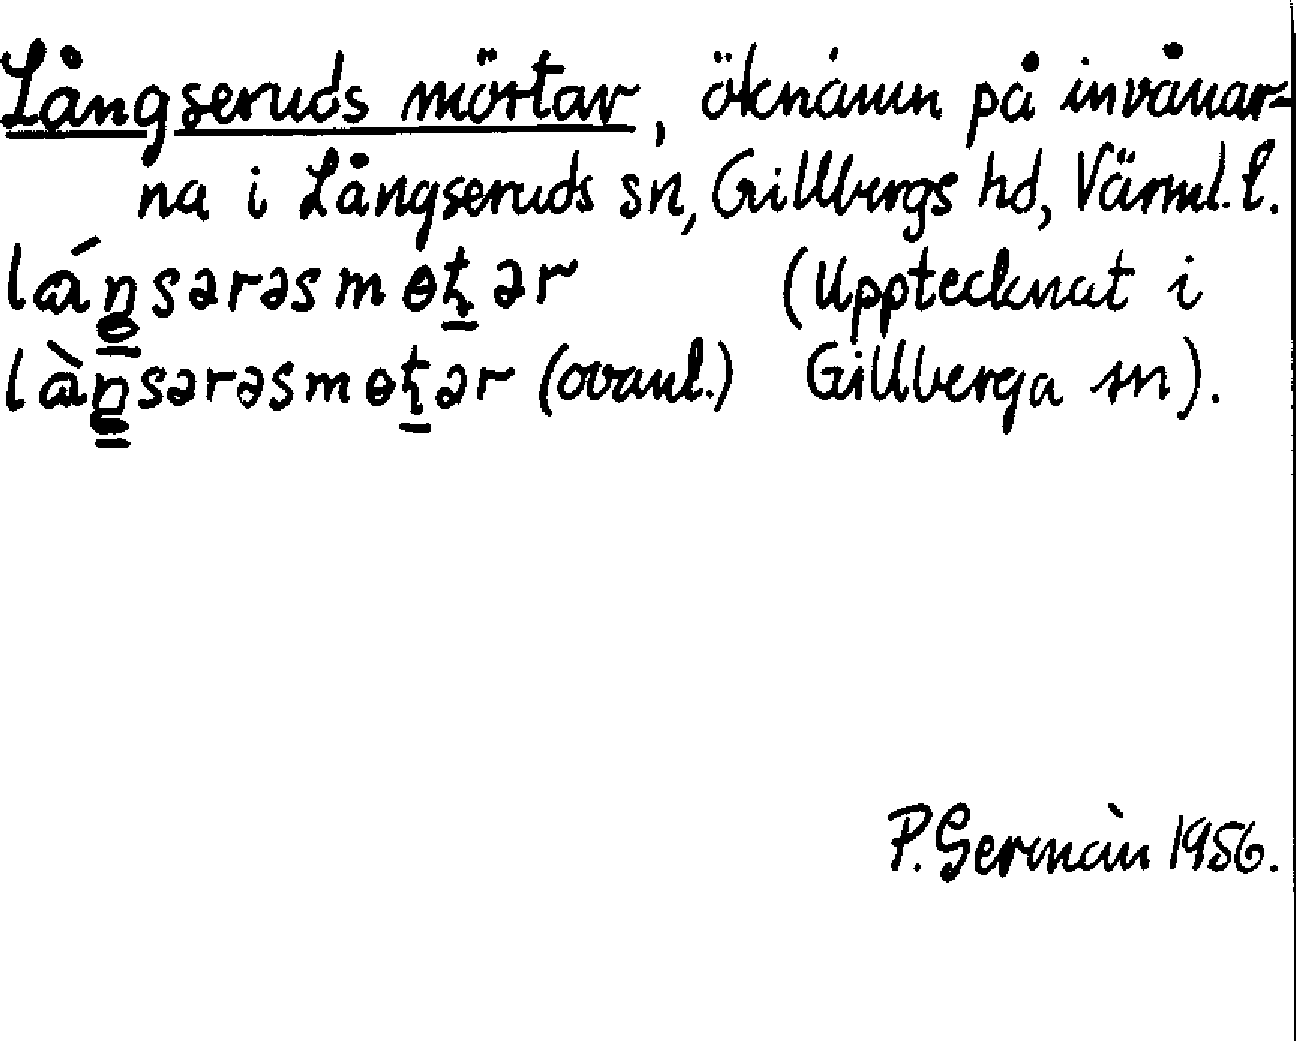 Långseruds mörtar, öknamn på invånar-
na i Långseruds sn, Gillbergs hd, Värml. l.
láŋsərəsmɵʈər (Upptecknat i
làŋsərəsmɵʈər (ovanl.) Gillberga sn).
P. Germàn 1956.